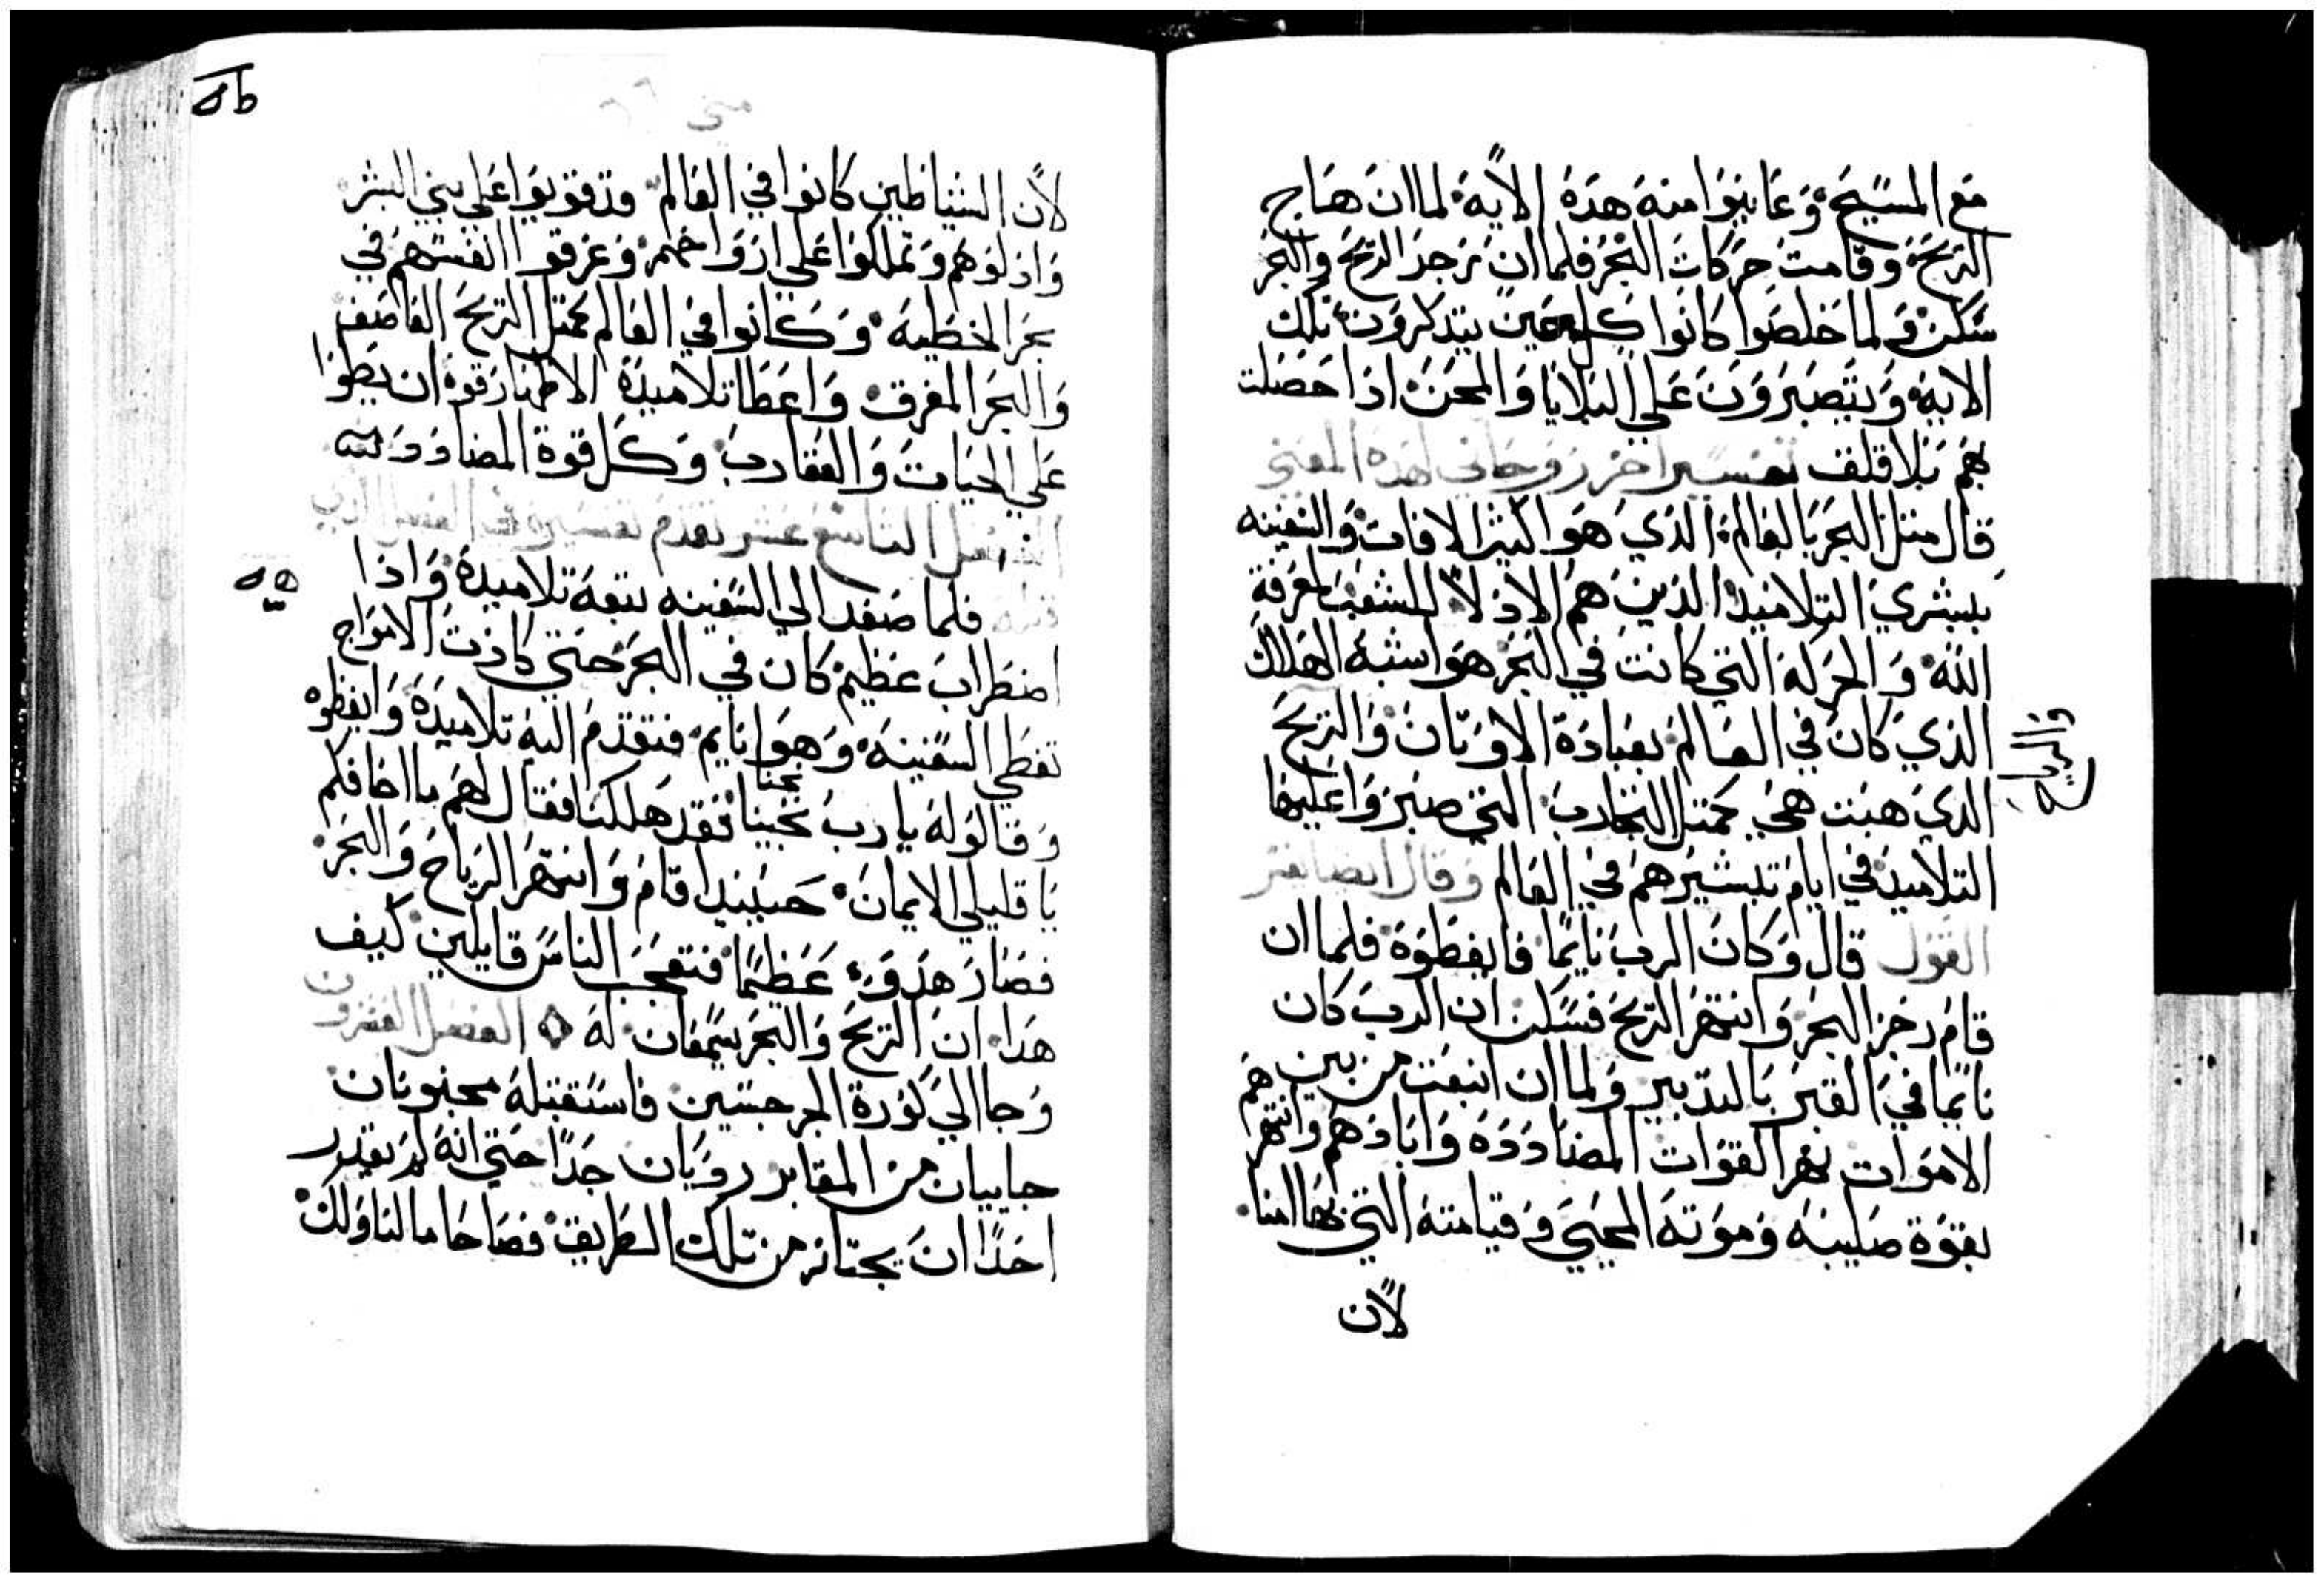 مَع المسًيحَ وَعَاينوَا منهَ هَدَهَ الاًيهَ لما انَ هَاج
الرَيحَ وَقامتَ حَركَاتَ البَحْرُ فلما ان زجَر الرَيحَ وَالبَحَرَ
سَكنَ وَلما خَلصَوا كانَوا كل حَينَ يتدَكرَونَ تلك
الايهَ وَيتَصبَرَوَنَ عَلي البَلاَيا وَالمحَنَ ادَا حَصَلت
بَهم بَلا قلقَ تفسَير اخر رَوحَاني لهَدهَ المعَني
قال متل البحَر بَالعَالمَ الدَيَ هَوَ اكتير الافاتَ وَالسَفينه
بَبشريَ التلاميدَ الدَينَ هَم الادَ لاً للشعَبَ لمعَرفةَ
اللهَ وَالحَركهَ التي كانتَ في البَحَرَ هَوَ اشبهَ الهَلاكَ
الدَيَ كانَ في العَالمَ بعَبادَة الاوَتانَ وَالرَيحَ
الدَيَ هَبتَ هَيَ كمتل التجاربَ التي صبَرَوا عَليهَا
التلاميدَ في ايامَ تبشيرهَم فيَ العَالم وَقال ايضا يفسر
القوَل قال وَكانَ الربَ نايمًا فايقَظوَهَ فلما ان
قامَ زجَر البَحَرَ وَانتهَرَ الرَيحَ فسَكنَ ان الربَ كان
نايمًا فيَ القبَر بَالتدَبير وَلما ان انبعَتَ من بين
الامَوات نهَر القوَات المضَادَدَهَ وَابادَهَم وَانتهَرهَم
بقوَة صَليبهَ وَموَتهَ المحَييَ وَقيامتهَ التي بهَا امنا
لاًن
متي
لاًن الشياطين كانوا في العَالم وقدَ قويوَا عَلي بني البشر
وَادَلوَهَم وَتملكوَا عَلي ارَوَاحَهَم وَغرقوَا انفسَهَم في
بحَر الخطَيهَ وَكانوا في العَالم كمتل الرَيحَ العَاصَف
وَالبحَر المغرقَ وَاعَطَا تلاميدَهَ الاطهَار قوة ان يَطوا
عَلي الحَيات وَالعقاربَ وَكل قوة المضادَدَيه
الفصَل التاسع عَشر تقدَم تفسَيره في الفصَل الدي
قبله فلما صَعَد الي السَفينه تبعَهَ تلاميدَهَ وَادا
اضطرابَ عَظيم كانَ في البحَر حَتي كادَتَ الامَواج
تغطَي السَفينهَ وَهَوَا نايم فتقدَمَ اليهَ تلاميدَهَ وَايقظوه
وَقالوَا لهَ ياربَ نجينا فقدَ هَلكنا فقال لهَم ما اخافكم
نجنا
يَا قليلي الايمانَ حَينيدا قامَ وَانتهَر الرَياحَ وَالبَحَر
فصَارَ هَدَوَءَ عَظيمًا فتعَجَبَ الناسَ قايلين كيف
هَدَا ان الرَيحَ وَالبَحَر يسَمعَان لهَ الفصَل العَشرون
وَجا اليَ كوَرةَ الجرجسَين فاستَقبلهَ مجنونان
جاييان من المقابر رديَان جَدًا حَتي انهَ لم يَقدر
احَدًا انَ يجتاز من تلك الطَريق فصَاحَا ما لنا وَلك